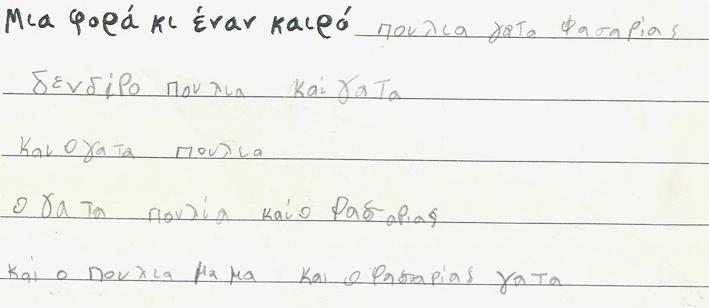 Μια φορά κι έναν καιρό πουλια γατα φασαρίας
δενδίρο πουλια καί γατα
και ο γατα πουλια
ο γατα πουλία καί ο φασαριας
καί ο πουλια μαμα και ο φασαρίας γατα